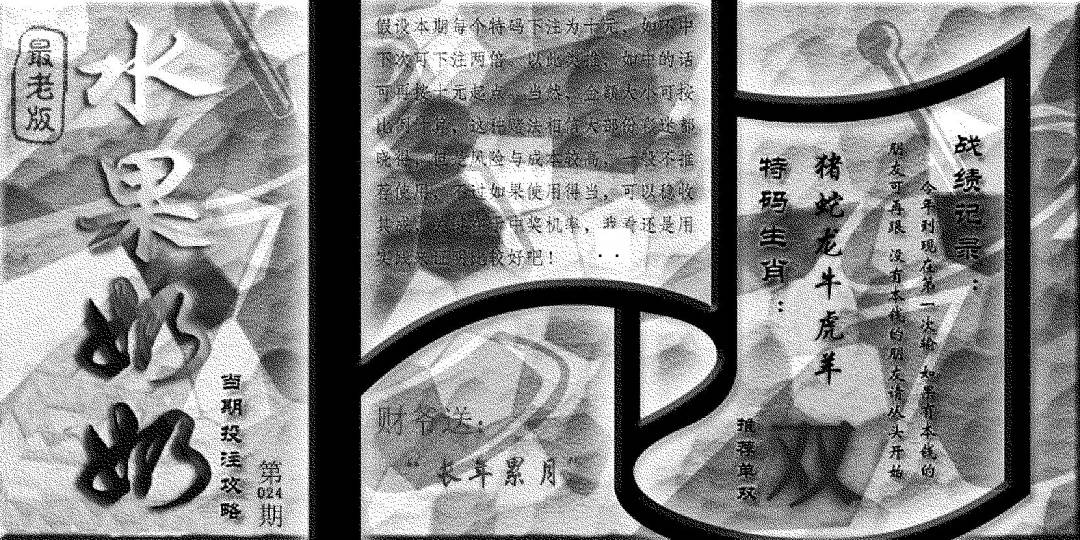 最老版
水果奶奶
当期投注攻略
第024期
假设本期每个特码下注为十元，如不中
下次可下注两倍，以此类推，如中的话
可再按十元起点，当然，金额大小可按
比例计算，这种赌法相信大部份彩迷都
晓得，但是风险与成本较高，一般不推
荐使用，不过如果使用得当，可以稳收
其成，
中奖机率，我看还是用
比较好吧！
财爷送：
“长年累月”
战绩记录：
今年到现在第一次输 如果有本钱的
朋友可再跟 没有本钱的朋友请从头开始
猪蛇龙牛虎羊
特码生肖：
推荐单双
双